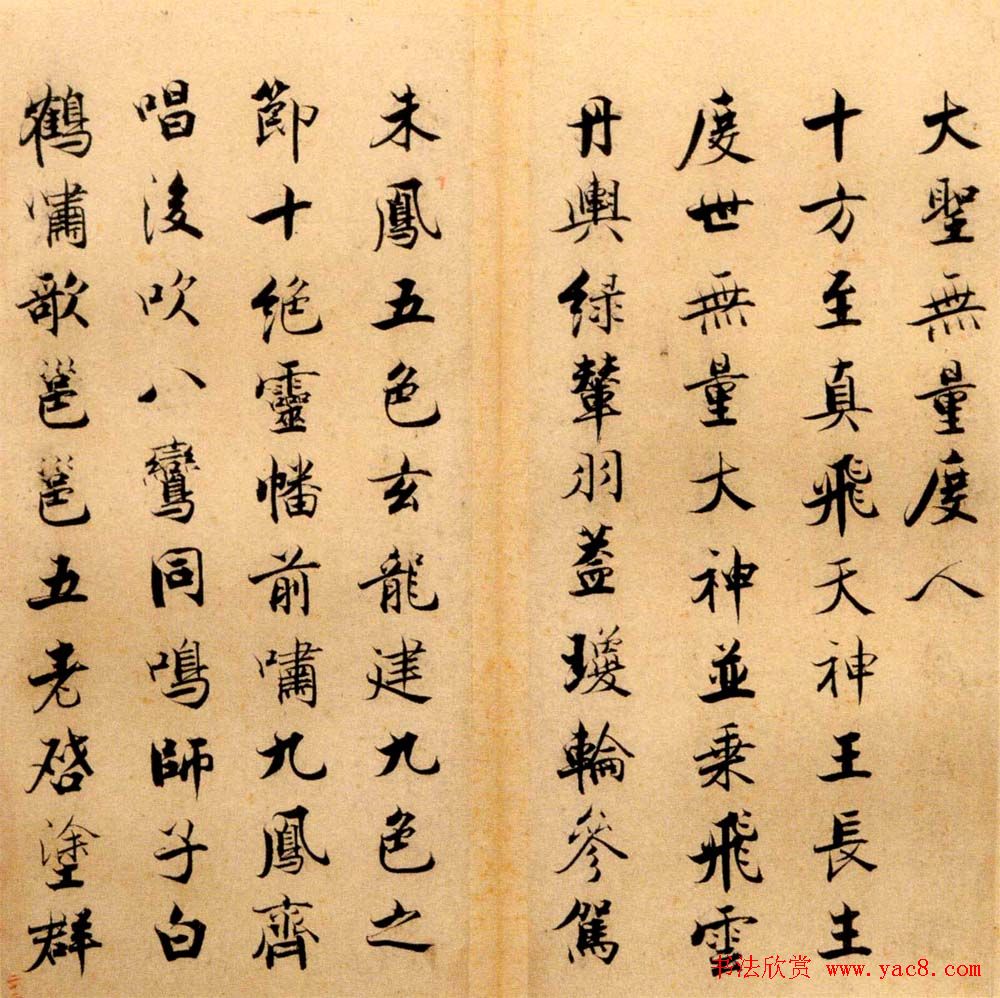 大聖無量度人
十方至真飛天神王長生
度世無量大神並乗飛雲
丹輿緑輦羽蓋瓊輪參駕
朱鳳五色玄龍建九色之
節十絶靈幡前嘯九鳳齊
唱後吹八鸞同鳴師子白
鶴嘯歌邕邕五老啓塗群
书法欣赏 www.yac8.com